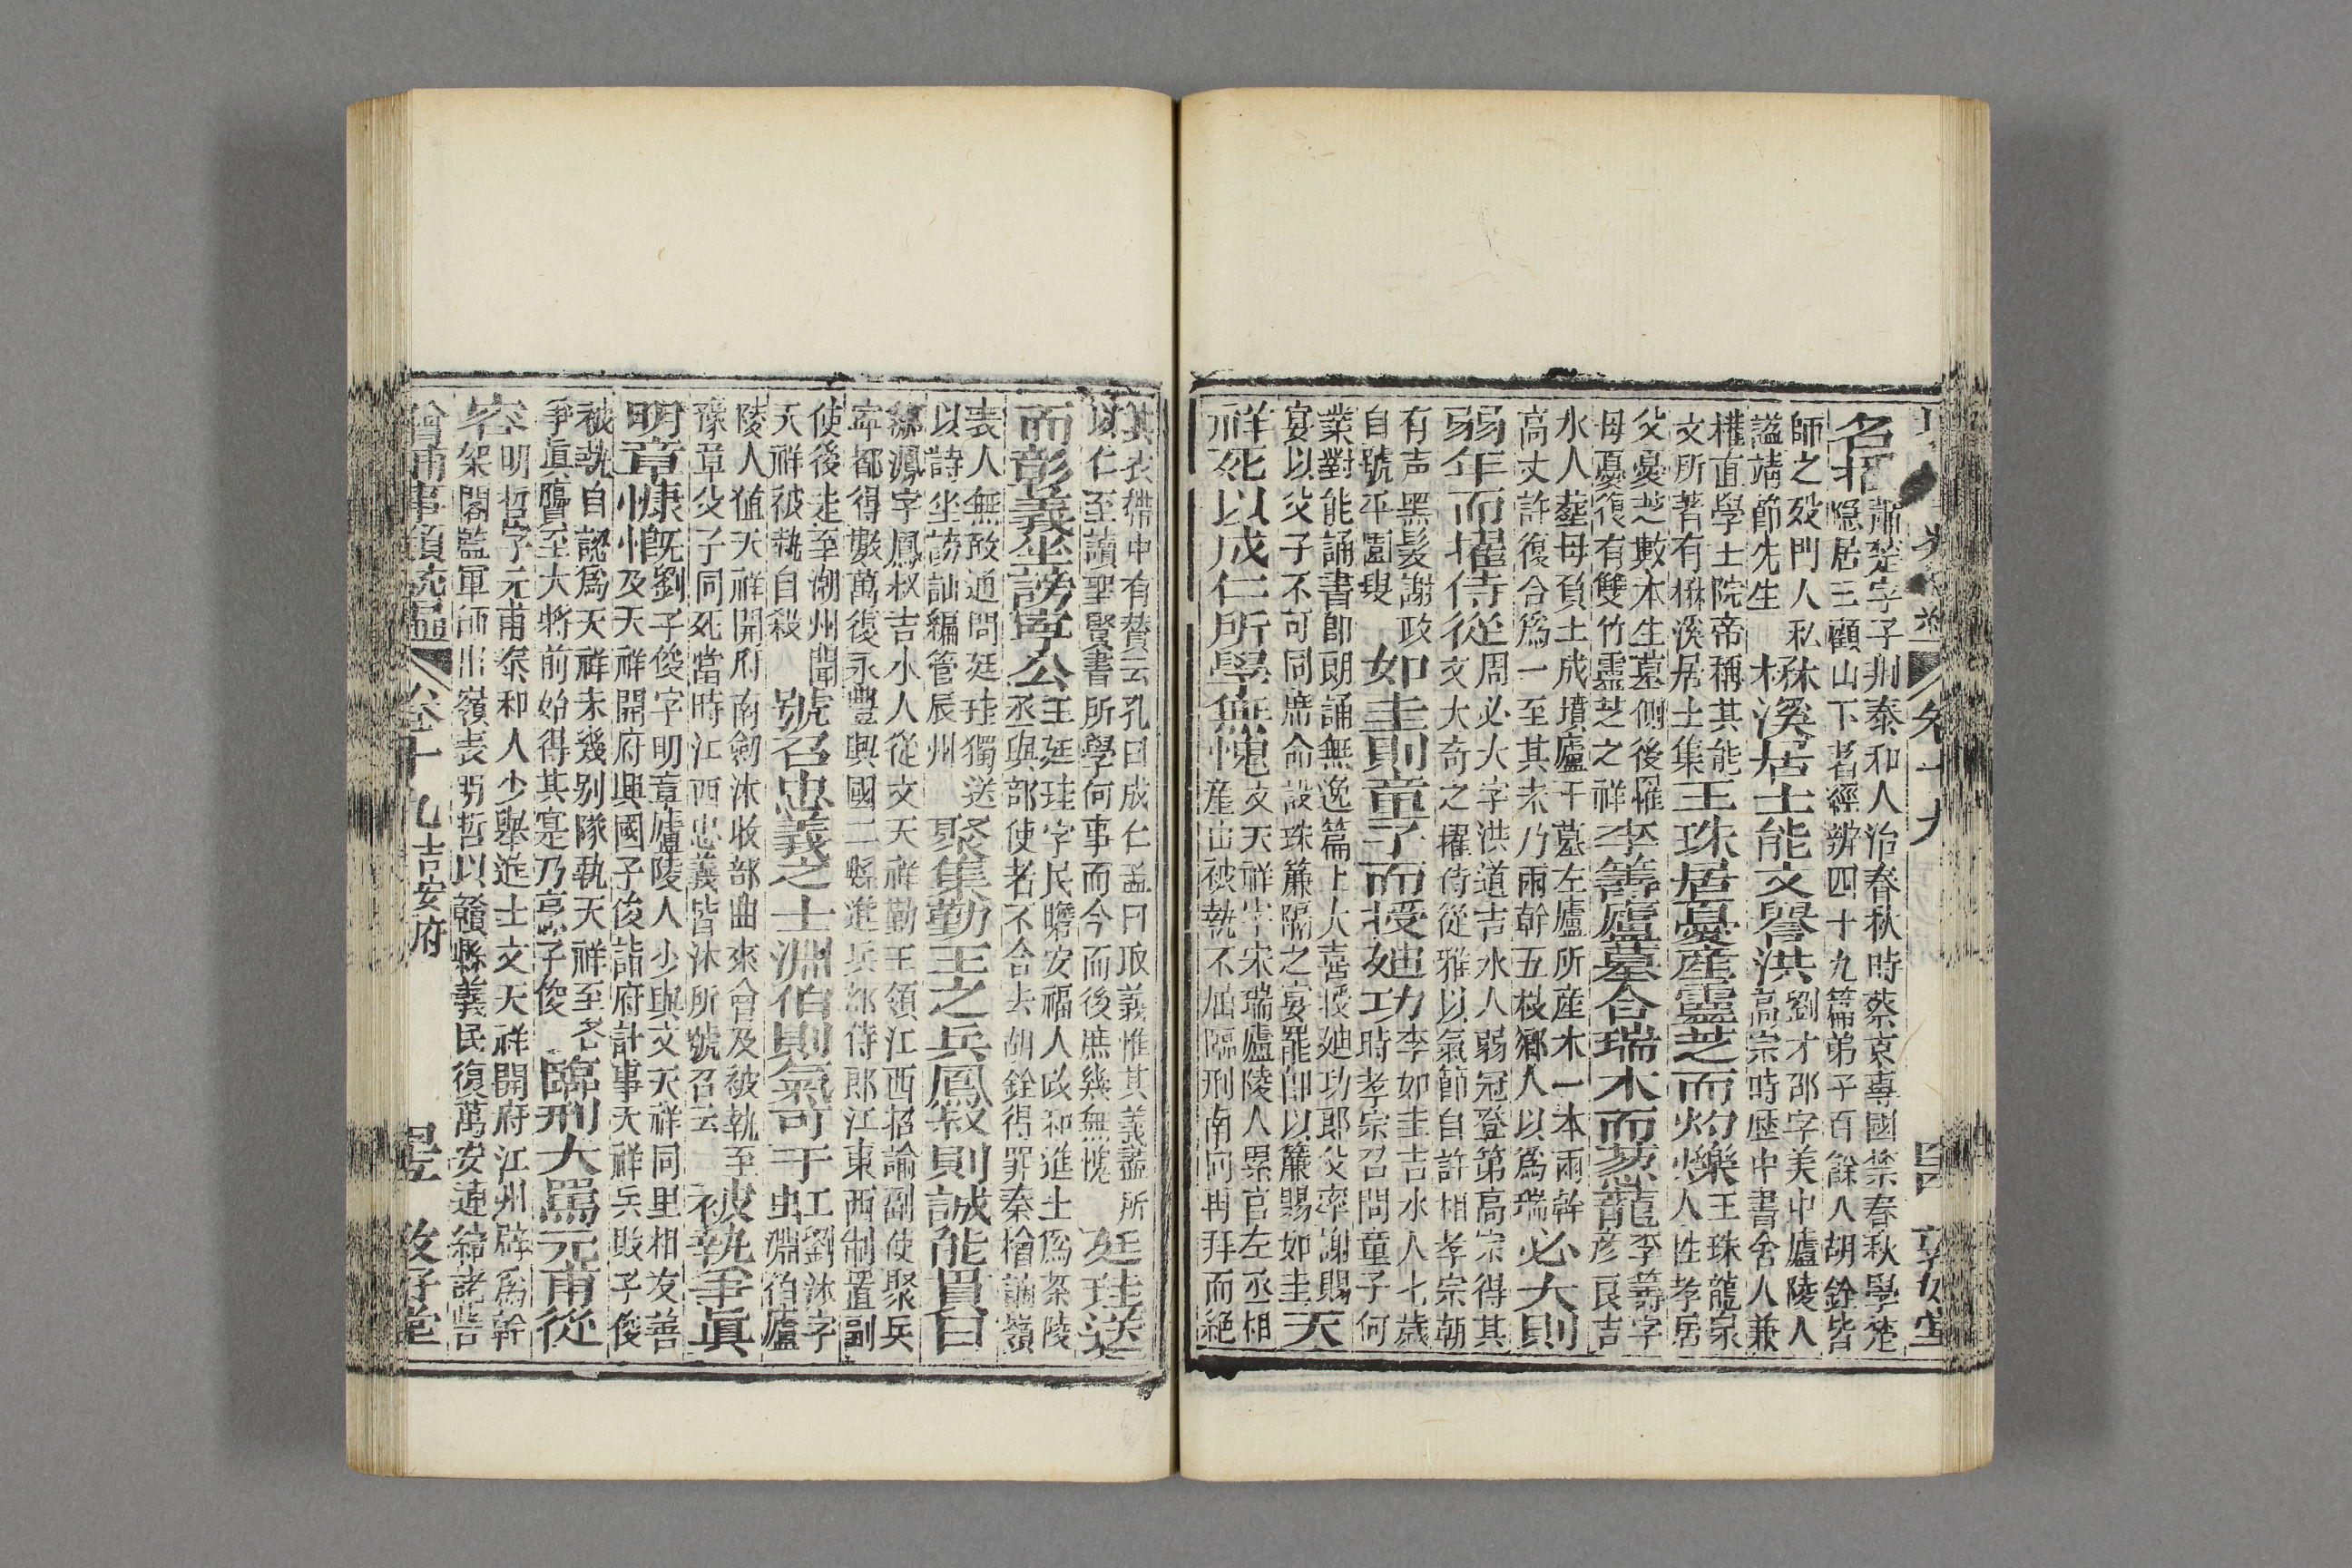 名拒
蕭楚字子荆泰和人治春秋時蔡京專國禁春秋學楚
隱居三顧山下著經辨四十九篇弟子百餘人胡銓皆
師之殁門人私
謚靖節先生
梅溪居士能文譽洪
劉才邵字美中廬陵人
高宗時歷中書舍人兼
權直學士院帝稱其能
文所著有檆溪居士集
王珠居憂產靈芝而灼爍
王珠龍泉
人性孝居
父憂芝數本生墓側後罹
母憂復有雙竹靈芝之祥
李籌廬墓合瑞木而葱蘢
李籌字
彦良吉
水人塟母負土成墳廬于墓左廬所産木一本兩幹
高丈許復合爲一至其末乃兩幹五枝鄉人以爲瑞
必大則
弱年而擢侍從
周必大字洪道吉水人弱冠登第高宗得其
文大奇之擢侍從雅以氣節自許相孝宗朝
有声黑髮謝政
自號平園叟
如圭則童子而授廸功
李如圭吉水人七歲
時孝宗召問童子何
業對能誦書卽朗誦無逸篇上大喜授廸功郎父率謝賜
宴以父子不可同席命設珠簾隔之宴罷卽以簾賜如圭
天
祥死以成仁所學無愧
文天祥字宋瑞廬陵人累官左丞相
産山被執不屈臨刑南向再拜而絶
其衣帶中有贊云孔曰成仁孟曰取義惟其義盡所
以仁至讀聖賢書所學何事而今而後庶幾無愧
廷珪送
而彰義坐謗寧公
王廷珪字民瞻安福人政和進士爲茶陵
丞與部使者不合去胡銓得罪秦檜謫嶺
表人無敢通問廷珪獨送
以詩坐謗訕編管辰州
聚集勤王之兵鳳叔則誠能貫日
鄒㵯字鳳叔吉水人從文天祥勤王領江西招諭副使聚兵
寧都得數萬復永豐興國二縣進兵部侍郎江東西制置副
使後走至潮州聞
天祥被執自殺
號召忠義之士淵伯則氣可干虹
劉沐字
淵伯廬
陵人值天祥開府南劒沐收部曲來會及被執至
豫章父子同死當時江西忠義皆沐所號召云
被執爭眞
明章慷慨
劉子俊字明章廬陵人少與文天祥同里相友善
及天祥開府興國子俊詣府計事天祥兵敗子俊
被執自認爲天祥未幾别隊執天祥至各
爭眞贋至大將前始得其寔乃烹子俊
臨刑大罵元甫從
容
明哲字元甫泰和人少舉進士文天祥開府江州辟爲幹
架閣監軍師出嶺表明哲以贛縣義民復萬安連結諸砦
卷十九
吉安府
昱
敦好堂